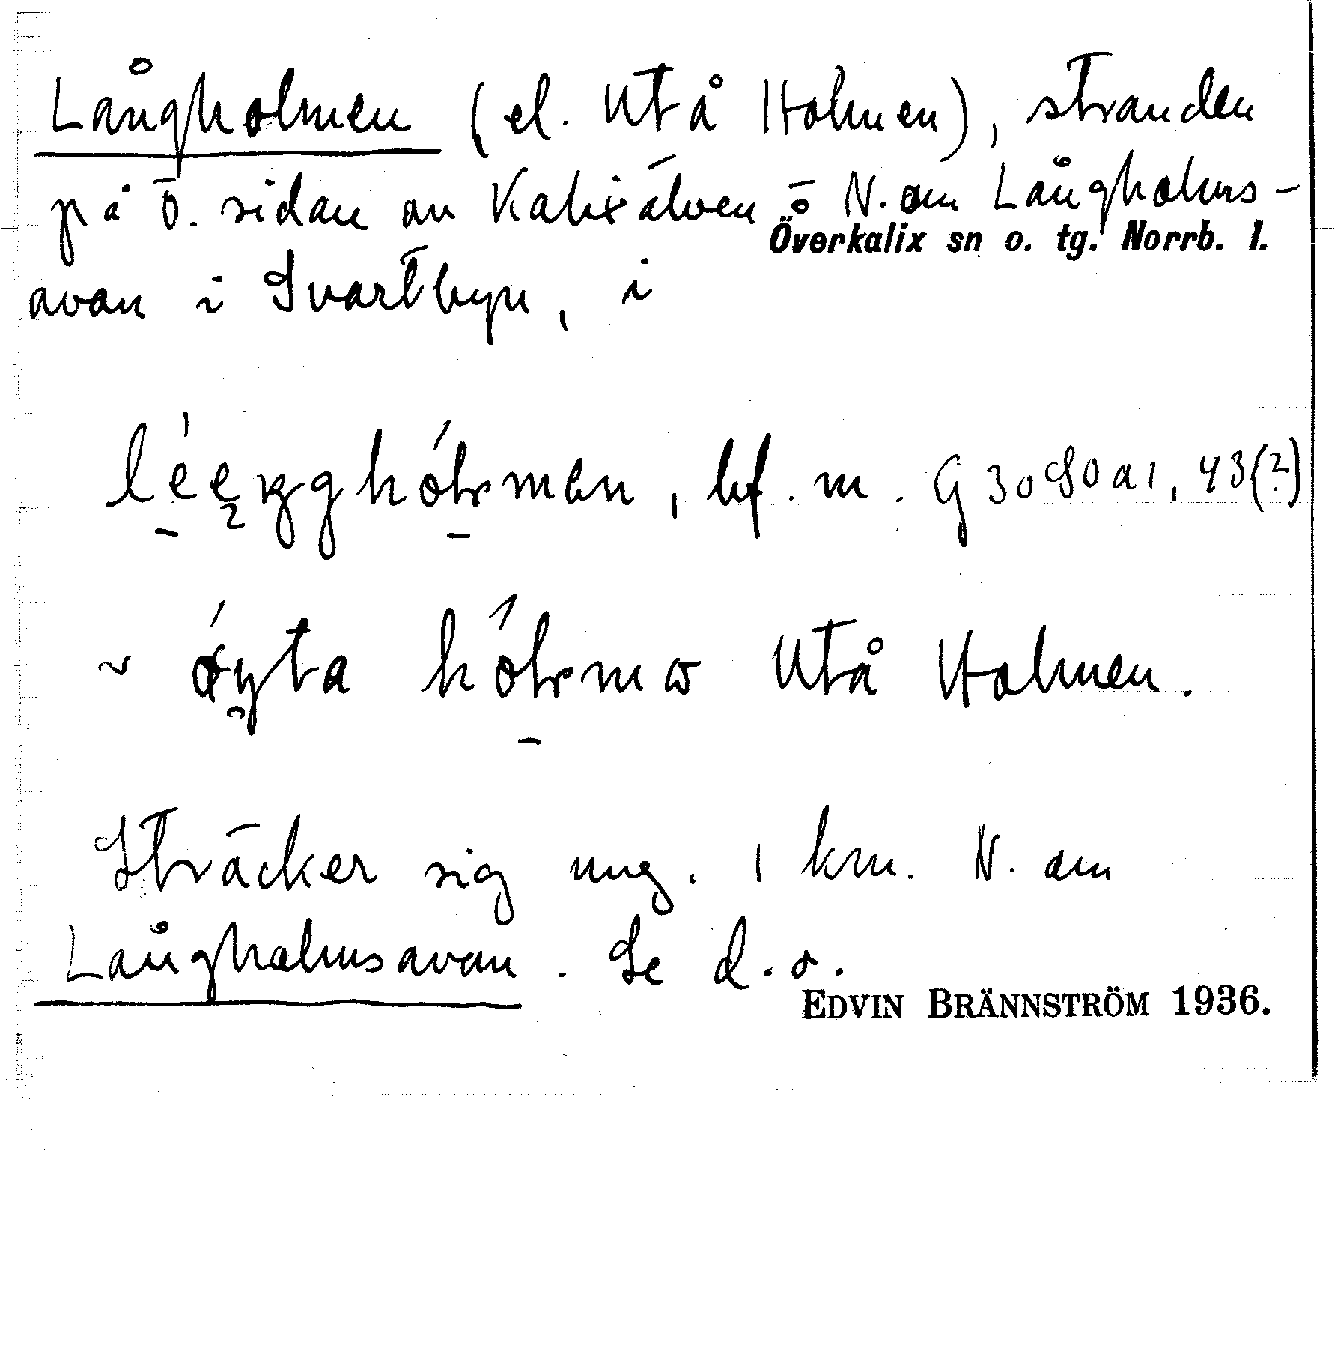 Långholmen (el. Utå Holmen), stranden
på Ö. sidan av Kalixälven o N. om Långholms-
Överkalix sn o. tg. Norrb. l.
avan i Svartbyn, i
bf. m. G 3080a1, 43(?)
~ Utå Holmen.
Sträcker sig ung. 1 km. N. om
Långholmsavan. Se d. o.
EDVIN BRÄNNSTRÖM 1936.